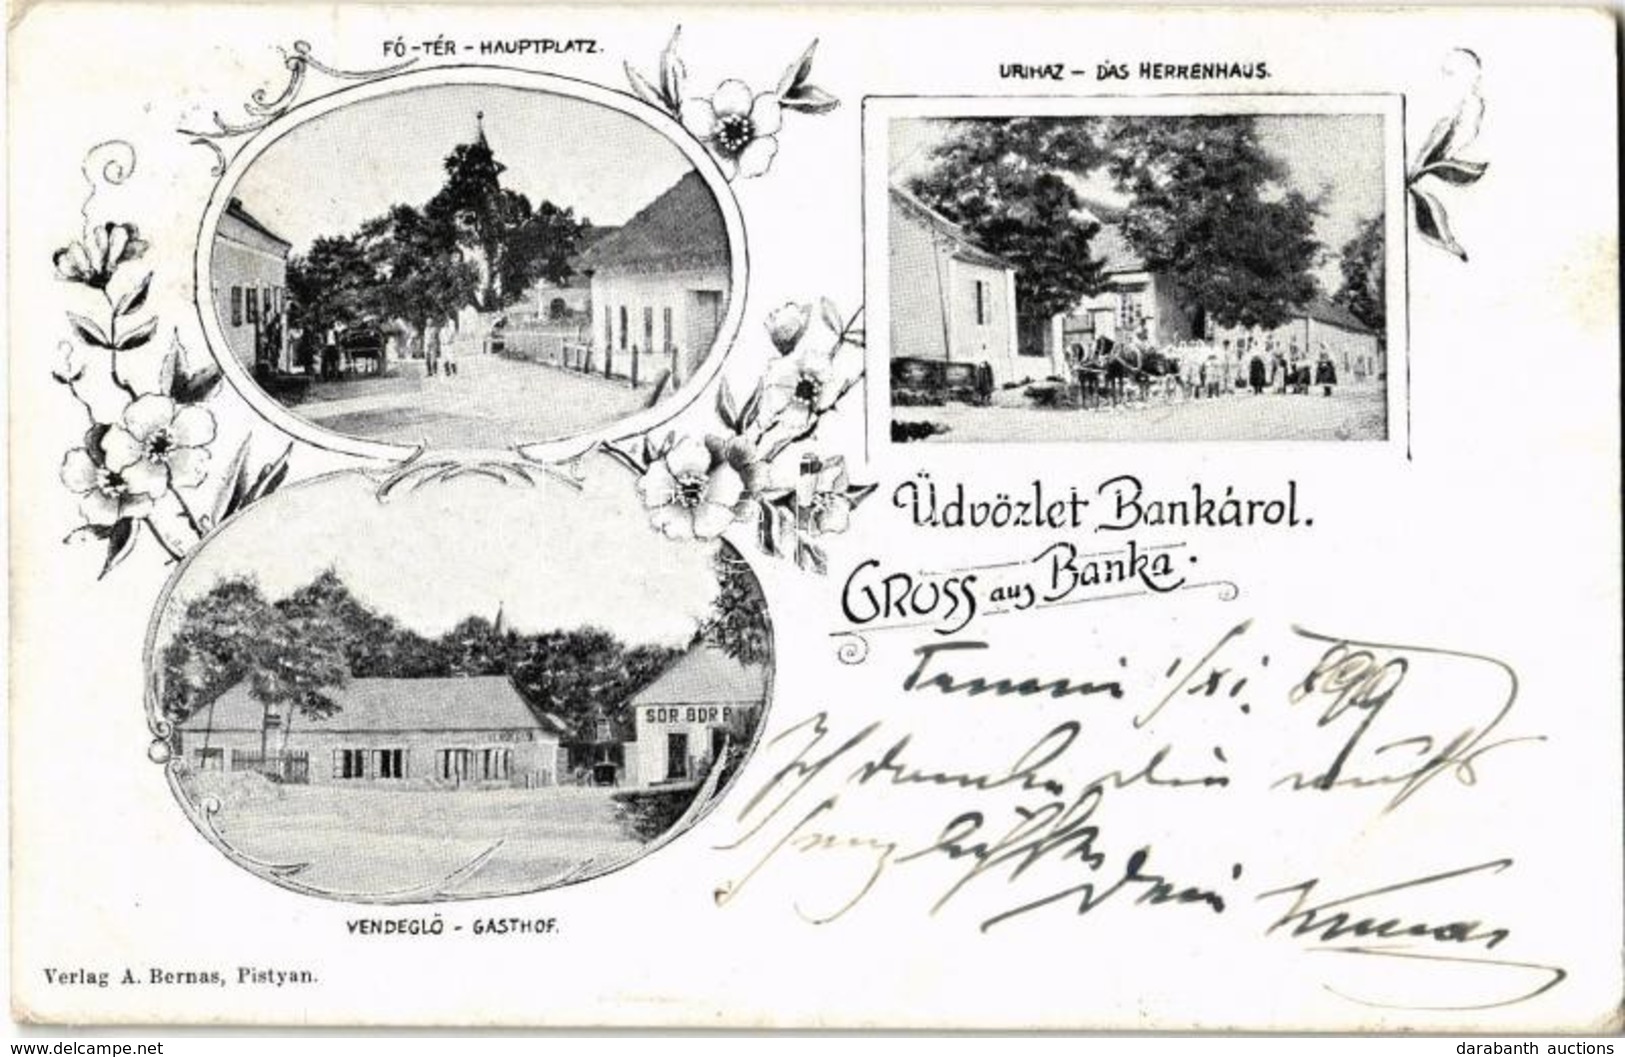 FŐ-TÉR - HAUPTPLATZ.
URIHAZ - DAS HERRENHAUS.
Üdvözlet Bankárol.
GRUSS aus Banka.
1/XI. 899
Ich danke Dir
herzlichst
Dein
SÖR BOR P
VENDEGLŐ - GASTHOF.
Verlag A. Bernas, Pistyan.
www.delcampe.net
darabanth auctions